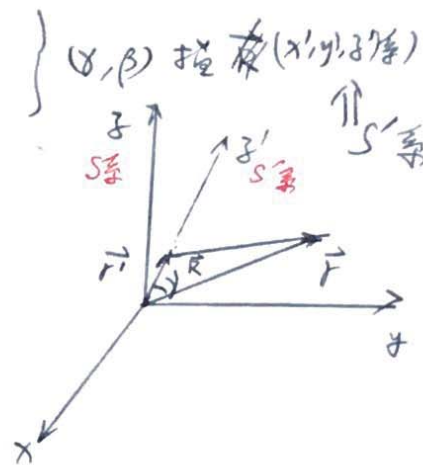 (γ, β) 描 (x', y', z' 系)
S' 系
z
S系
z'
S'系
r'
R
γ
r
y
x